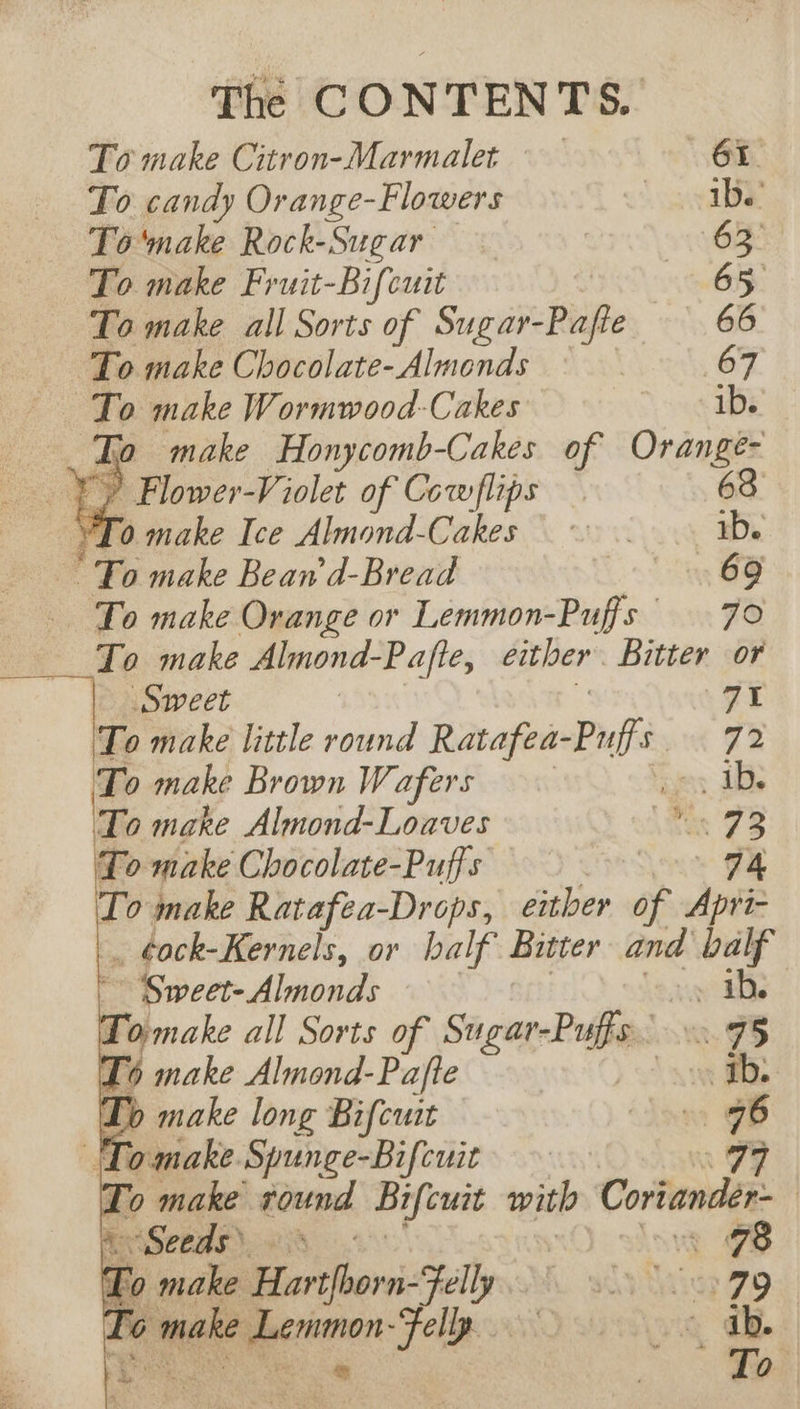 The CONTENTS.
To make Citron-Marmalet 61
To candy Orange-Flowers ib.
To make Rock-Sugar 63
To make Fruit-Biſcuit 65
To make all Sorts of Sugar-Paſte 66
To make Chocolate-Almonds 67
To make Wormwood-Cakes ib.
To make Honycomb-Cakes of Orange-
Flower-Violet of Cowſlips 68
To make Ice Almond-Cakes ib.
To make Bean'd-Bread 69
To make Orange or Lemmon-Puffs 70
To make Almond-Paſte, either Bitter or
Sweet 71
To make little round Ratafea-Puffs 72
To make Brown Wafers ib.
To make Almond-Loaves 73
To make Chocolate-Puffs 74
To make Ratafea-Drops, either of Apri-
cock-Kernels, or half Bitter and half
Sweet-Almonds ib.
To make all Sorts of Sugar-Puffs 75
To make Almond-Paſte ib.
To make long Biſcuit 76
To make Spunge-Biſcuit 77
To make round Biſcuit with Coriander-
Seeds 78
To make Hartſhorn-Jelly 79
To make Lemmon-Jelly ib.
To